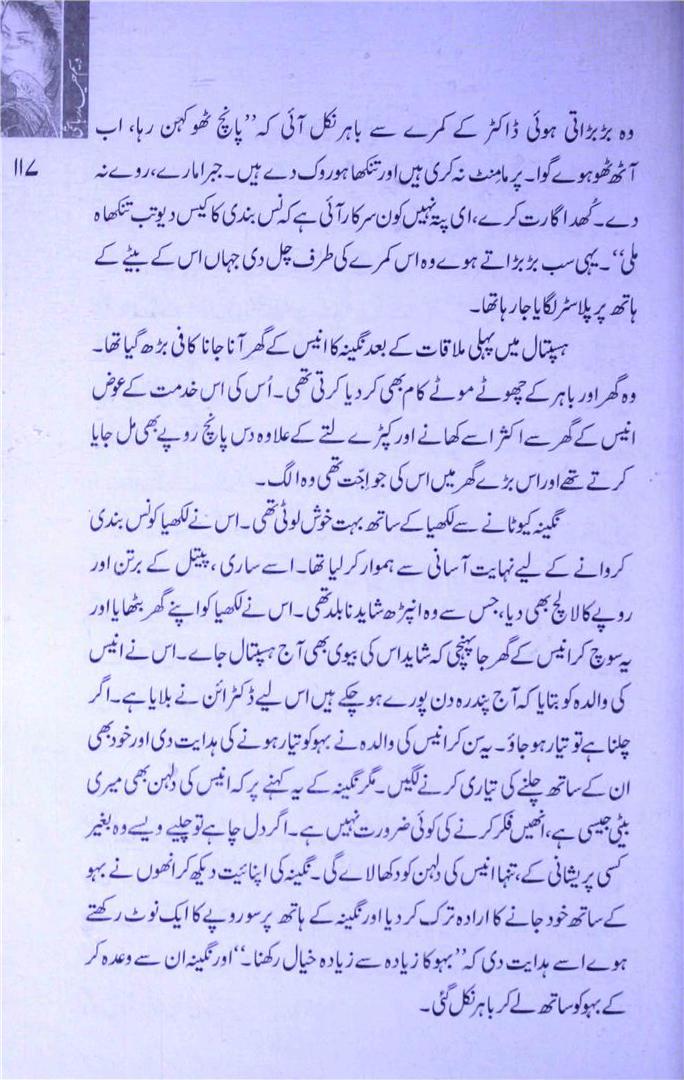 ۱۱۷
وہ بڑبڑاتی ہوئی ڈاکٹر کے کمرے سے باہر نکل آئی کہ ”پانچ ٹھو کہن رہا، اب
آٹھ ٹھو ہوے گوا۔ پرمامِنٹ نہ کری ہیں اور تنکھا ہو روک دے ہیں۔ جبرا مارے، روے نہ
دے۔ کُھدا گارت کرے، ای پتہ نہیں کون سرکار آئی ہے کہ نس بندی کا کیس دیو تب تنکھاہ
ملی“۔ یہی سب بڑبڑاتے ہوے وہ اس کمرے کی طرف چل دی جہاں اس کے بیٹے کے
ہاتھ پر پلاسٹر لگایا جا رہا تھا۔
ہسپتال میں پہلی ملاقات کے بعد نگینہ کا انیس کے گھر آنا جانا کافی بڑھ گیا تھا۔
وہ گھر اور باہر کے چھوٹے موٹے کام بھی کر دیا کرتی تھی۔ اُس کی اس خدمت کے عوض
انیس کے گھر سے اکثر اسے کھانے اور کپڑے لتے کے علاوہ دس پانچ روپے بھی مل جایا
کرتے تھے اور اس بڑے گھر میں اس کی جو اجّت تھی وہ الگ۔
نگینہ کیوٹانے سے لکھیا کے ساتھ بہت خوش لوٹی تھی۔ اس نے لکھیا کو نس بندی
کروانے کے لیے نہایت آسانی سے ہموار کر لیا تھا۔ اسے ساری، پیتل کے برتن اور
روپے کا لالچ بھی دیا، جس سے وہ انپڑھ شاید نابلد تھی۔ اس نے لکھیا کو اپنے گھر بٹھایا اور
یہ سوچ کر انیس کے گھر جا پہنچی کہ شاید اس کی بیوی بھی آج ہسپتال جاے۔ اس نے انیس
کی والدہ کو بتایا کہ آج پندرہ دن پورے ہو چکے ہیں اس لیے ڈکٹرائن نے بلایا ہے۔ اگر
چلنا ہے تو تیار ہو جاؤ۔ یہ سن کر انیس کی والدہ نے بہو کو تیار ہونے کی ہدایت دی اور خود بھی
ان کے ساتھ چلنے کی تیاری کرنے لگیں۔ مگر نگینہ کے یہ کہنے پر کہ انیس کی دلہن بھی میری
بیٹی جیسی ہے، انھیں فکر کرنے کی کوئی ضرورت نہیں ہے۔ اگر دل چاہے تو چلیے ویسے وہ بغیر
کسی پریشانی کے، تنہا انیس کی دلہن کو دکھا لاے گی۔ نگینہ کی اپنائیت دیکھ کر انھوں نے بہو
کے ساتھ خود جانے کا ارادہ ترک کر دیا اور نگینہ کے ہاتھ پر سو روپے کا ایک نوٹ رکھتے
ہوے اسے ہدایت دی کہ ”بہو کا زیادہ سے زیادہ خیال رکھنا۔“ اور نگینہ ان سے وعدہ کر
کے بہو کو ساتھ لے کر باہر نکل گئی۔